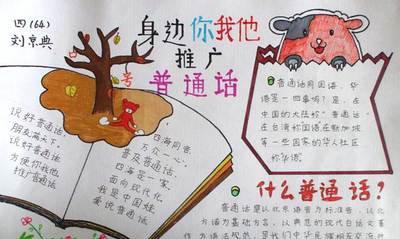 四(64)
刘京典
身边你我他
推广
普通话
说好普通话,
朋友满天下。
说好普通话
方便你我他
推广普通话
四海同音,
万众一心,
普及普通话,
四海是一家,
面向现代化
我是中国娃
爱说普通话
普通话同国语、华
语是一回事吗?是,在
中国的大陆称“普通话”
在台湾称国语在新加坡
等一些国家的华人社区
称华语。
什么普通话?
普通话是以北京语音为标准音,以北
方话为基础方言,以典范的现代白话文著
作为语法规范,是我们中华民族相互交流